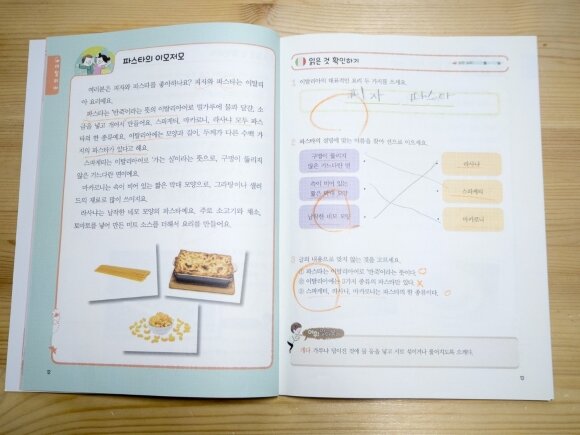 파스타의 이모저모
여러분은 피자와 파스타를 좋아하나요? 피자와 파스타는 이탈리
아 요리예요.
파스타는 '반죽'이라는 뜻의 이탈리아어로 밀가루에 물과 달걀, 소
금을 넣고 개어서 만들어요. 스파게티, 마카로니, 라사냐 모두 파스
타의 한 종류예요. 이탈리아에는 모양과 길이, 두께가 다른 수백 가
지의 파스타가 있다고 해요.
스파게티는 이탈리아어로 '가는 실'이라는 뜻으로, 구멍이 뚫리지
않은 가느다란 면이에요.
마카로니는 속이 비어 있는 짧은 막대 모양으로, 그라탕이나 샐러
드의 재료로 많이 쓰이지요.
라사냐는 납작한 네모 모양의 파스타예요. 주로 소고기와 채소,
토마토를 넣어 만든 미트 소스를 더해서 요리를 만들어요.
12
읽은 것 확인하기
1 이탈리아의 대표적인 요리 두 가지를 쓰세요.
피자 파스타
2 파스타의 설명에 맞는 이름을 찾아 선으로 이으세요.
구멍이 뚫리지
않은 가느다란 면
라사냐
속이 비어 있는
짧은 막대 모양
스파게티
납작한 네모 모양
마카로니
3 글의 내용으로 맞지 않는 것을 고르세요.
① 파스타는 이탈리아어로 '반죽'이라는 뜻이다.
② 이탈리아에는 3가지 종류의 파스타만 있다.
③ 스파게티, 라사냐, 마카로니는 파스타의 한 종류이다.
개다 가루나 덩이진 것에 물 등을 넣고 서로 섞이거나 풀어지도록 으깨다.
13